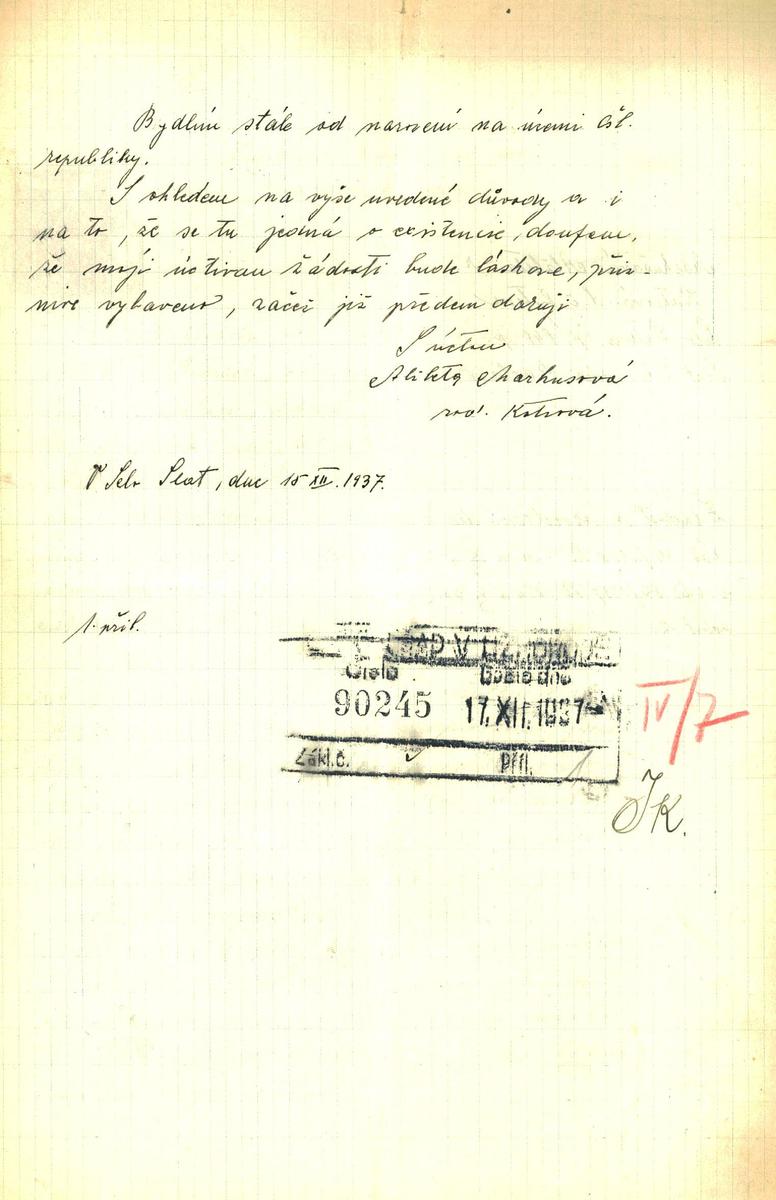 Bydlím stále od narození na území čsl.
republiky.
S ohledem na výše uvedené důvody a i
na to, že se tu jedná o existenci, doufám,
že moji uctivou žádosti bude láskavě, příz-
nivě vybaveno, začež již předem děkuji
S úctou
Markusová
roz.
V Slat, dne 15 XII. 1937.
1 příl.
Číslo Došlo dne
90245 17. XII. 1937
Zákl.č. Příl. 1
IV/7
JK.